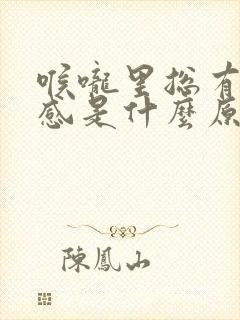 喉嚨里總有
感是什麼原
陳鳳山